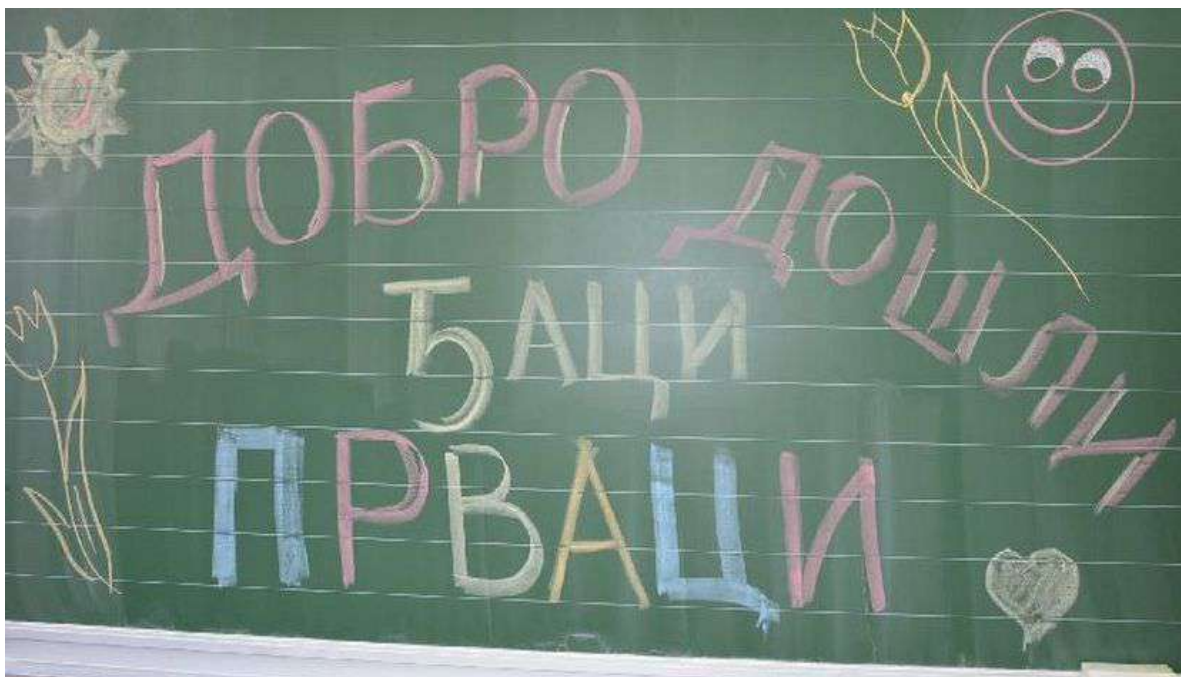 ДОБРО ДОШЛИ
ЂАЦИ
ПРВАЦИ